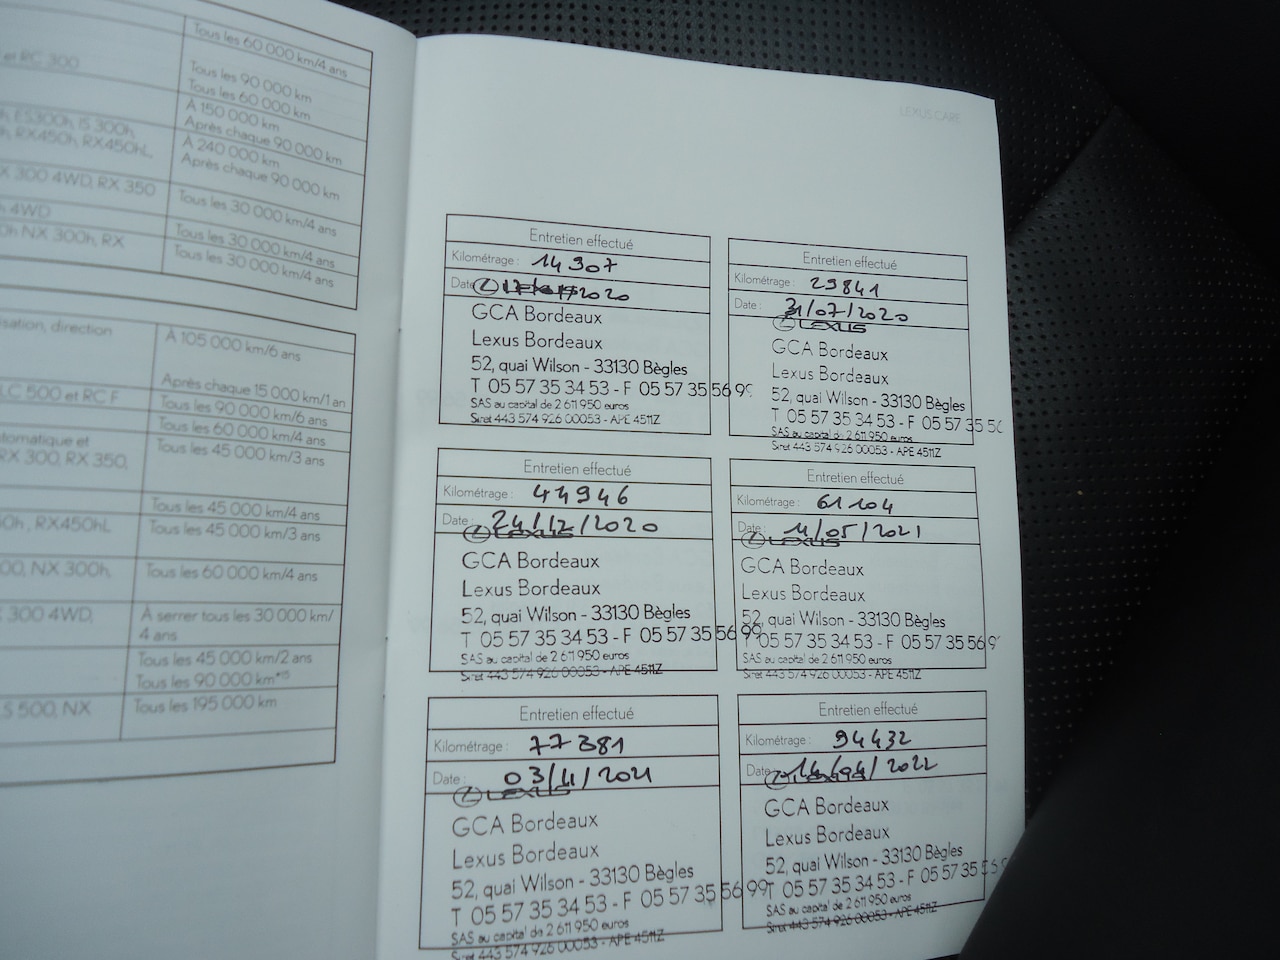 Tous les 60 000 km/4 ans
et RC 300
Tous les 90 000 km
Tous les 60 000 km
À 150 000 km
Après chaque 90 000 km
ES300h, IS 300h,
RX450h, RX450hL,
À 240 000 km
Après chaque 90 000 km
300 4WD, RX 350
Tous les 30 000 km/4 ans
4WD
Tous les 30 000 km/4 ans
NX 300h, RX
Tous les 30 000 km/4 ans
isation, direction
À 105 000 km/6 ans
Après chaque 15 000 km/1 an
LC 500 et RC F
Tous les 90 000 km/6 ans
Tous les 60 000 km/4 ans
tomatique et
RX 300, RX 350,
Tous les 45 000 km/3 ans
Tous les 45 000 km/4 ans
, RX450hL
Tous les 45 000 km/3 ans
NX 300h,
Tous les 60 000 km/4 ans
300 4WD,
À serrer tous les 30 000 km/
4 ans
Tous les 45 000 km/2 ans
Tous les 90 000 km
LS 500, NX
Tous les 195 000 km
LEXUS CARE
Entretien effectué
Kilométrage : 14307
Date 2020
GCA Bordeaux
Lexus Bordeaux
52, quai Wilson - 33130 Bègles
T 05 57 35 34 53 - F 05 57 35 56 99
SAS au capital de 2 611 950 euros
Siret 443 574 926 00053 - APE 4511Z
Entretien effectué
Kilométrage : 29841
Date : 31/07/2020
LEXUS
GCA Bordeaux
Lexus Bordeaux
52, quai Wilson - 33130 Bègles
T 05 57 35 34 53 - F 05 57 35 56
SAS au capital de 2 611 950 euros
Siret 443 574 926 00053 - APE 4511Z
Entretien effectué
Kilométrage : 44946
Date : 24/12/2020
LEXUS
GCA Bordeaux
Lexus Bordeaux
52, quai Wilson - 33130 Bègles
T 05 57 35 34 53 - F 05 57 35 56 99
SAS au capital de 2 611 950 euros
Siret 443 574 926 00053 - APE 4511Z
Entretien effectué
Kilométrage : 61104
Date : 11/05/2021
LEXUS
GCA Bordeaux
Lexus Bordeaux
52, quai Wilson - 33130 Bègles
T 05 57 35 34 53 - F 05 57 35 56 9
SAS au capital de 2 611 950 euros
Siret 443 574 926 00053 - APE 4511Z
Entretien effectué
Kilométrage : 77381
Date : 03/11/2021
LEXUS
GCA Bordeaux
Lexus Bordeaux
52, quai Wilson - 33130 Bègles
T 05 57 35 34 53 - F 05 57 35 56 99
SAS au capital de 2 611 950 euros
Siret 443 574 926 00053 - APE 4511Z
Entretien effectué
Kilométrage : 94432
Date : 14/04/2022
LEXUS
GCA Bordeaux
Lexus Bordeaux
52, quai Wilson - 33130 Bègles
T 05 57 35 34 53 - F 05 57 35 56
SAS au capital de 2 611 950 euros
Siret 443 574 926 00053 - APE 4511Z